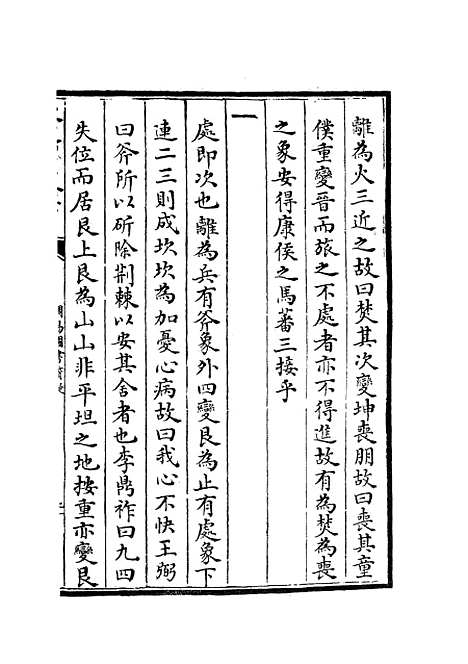 離為火三近之故曰焚其次變坤喪朋故曰喪其童
僕重變晉而旅之不處者亦不得進故有為焚為喪
之象安得康侯之馬蕃三接乎
一
處即次也離為兵有斧象外四變艮為止有處象下
連二三則成坎坎為加憂心病故曰我心不快王弼
曰斧所以斫除荆棘以安其舍者也李鼎祚曰九四
失位而居艮上艮為山山非平坦之地按重亦變艮